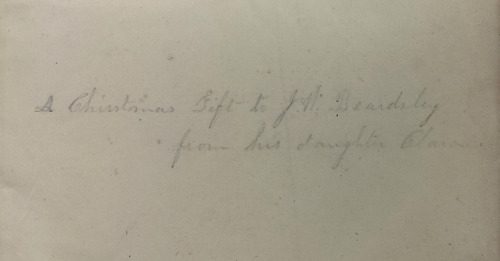 A Chirstmas Gift to J. W. Beardsley
from his daughter Clara